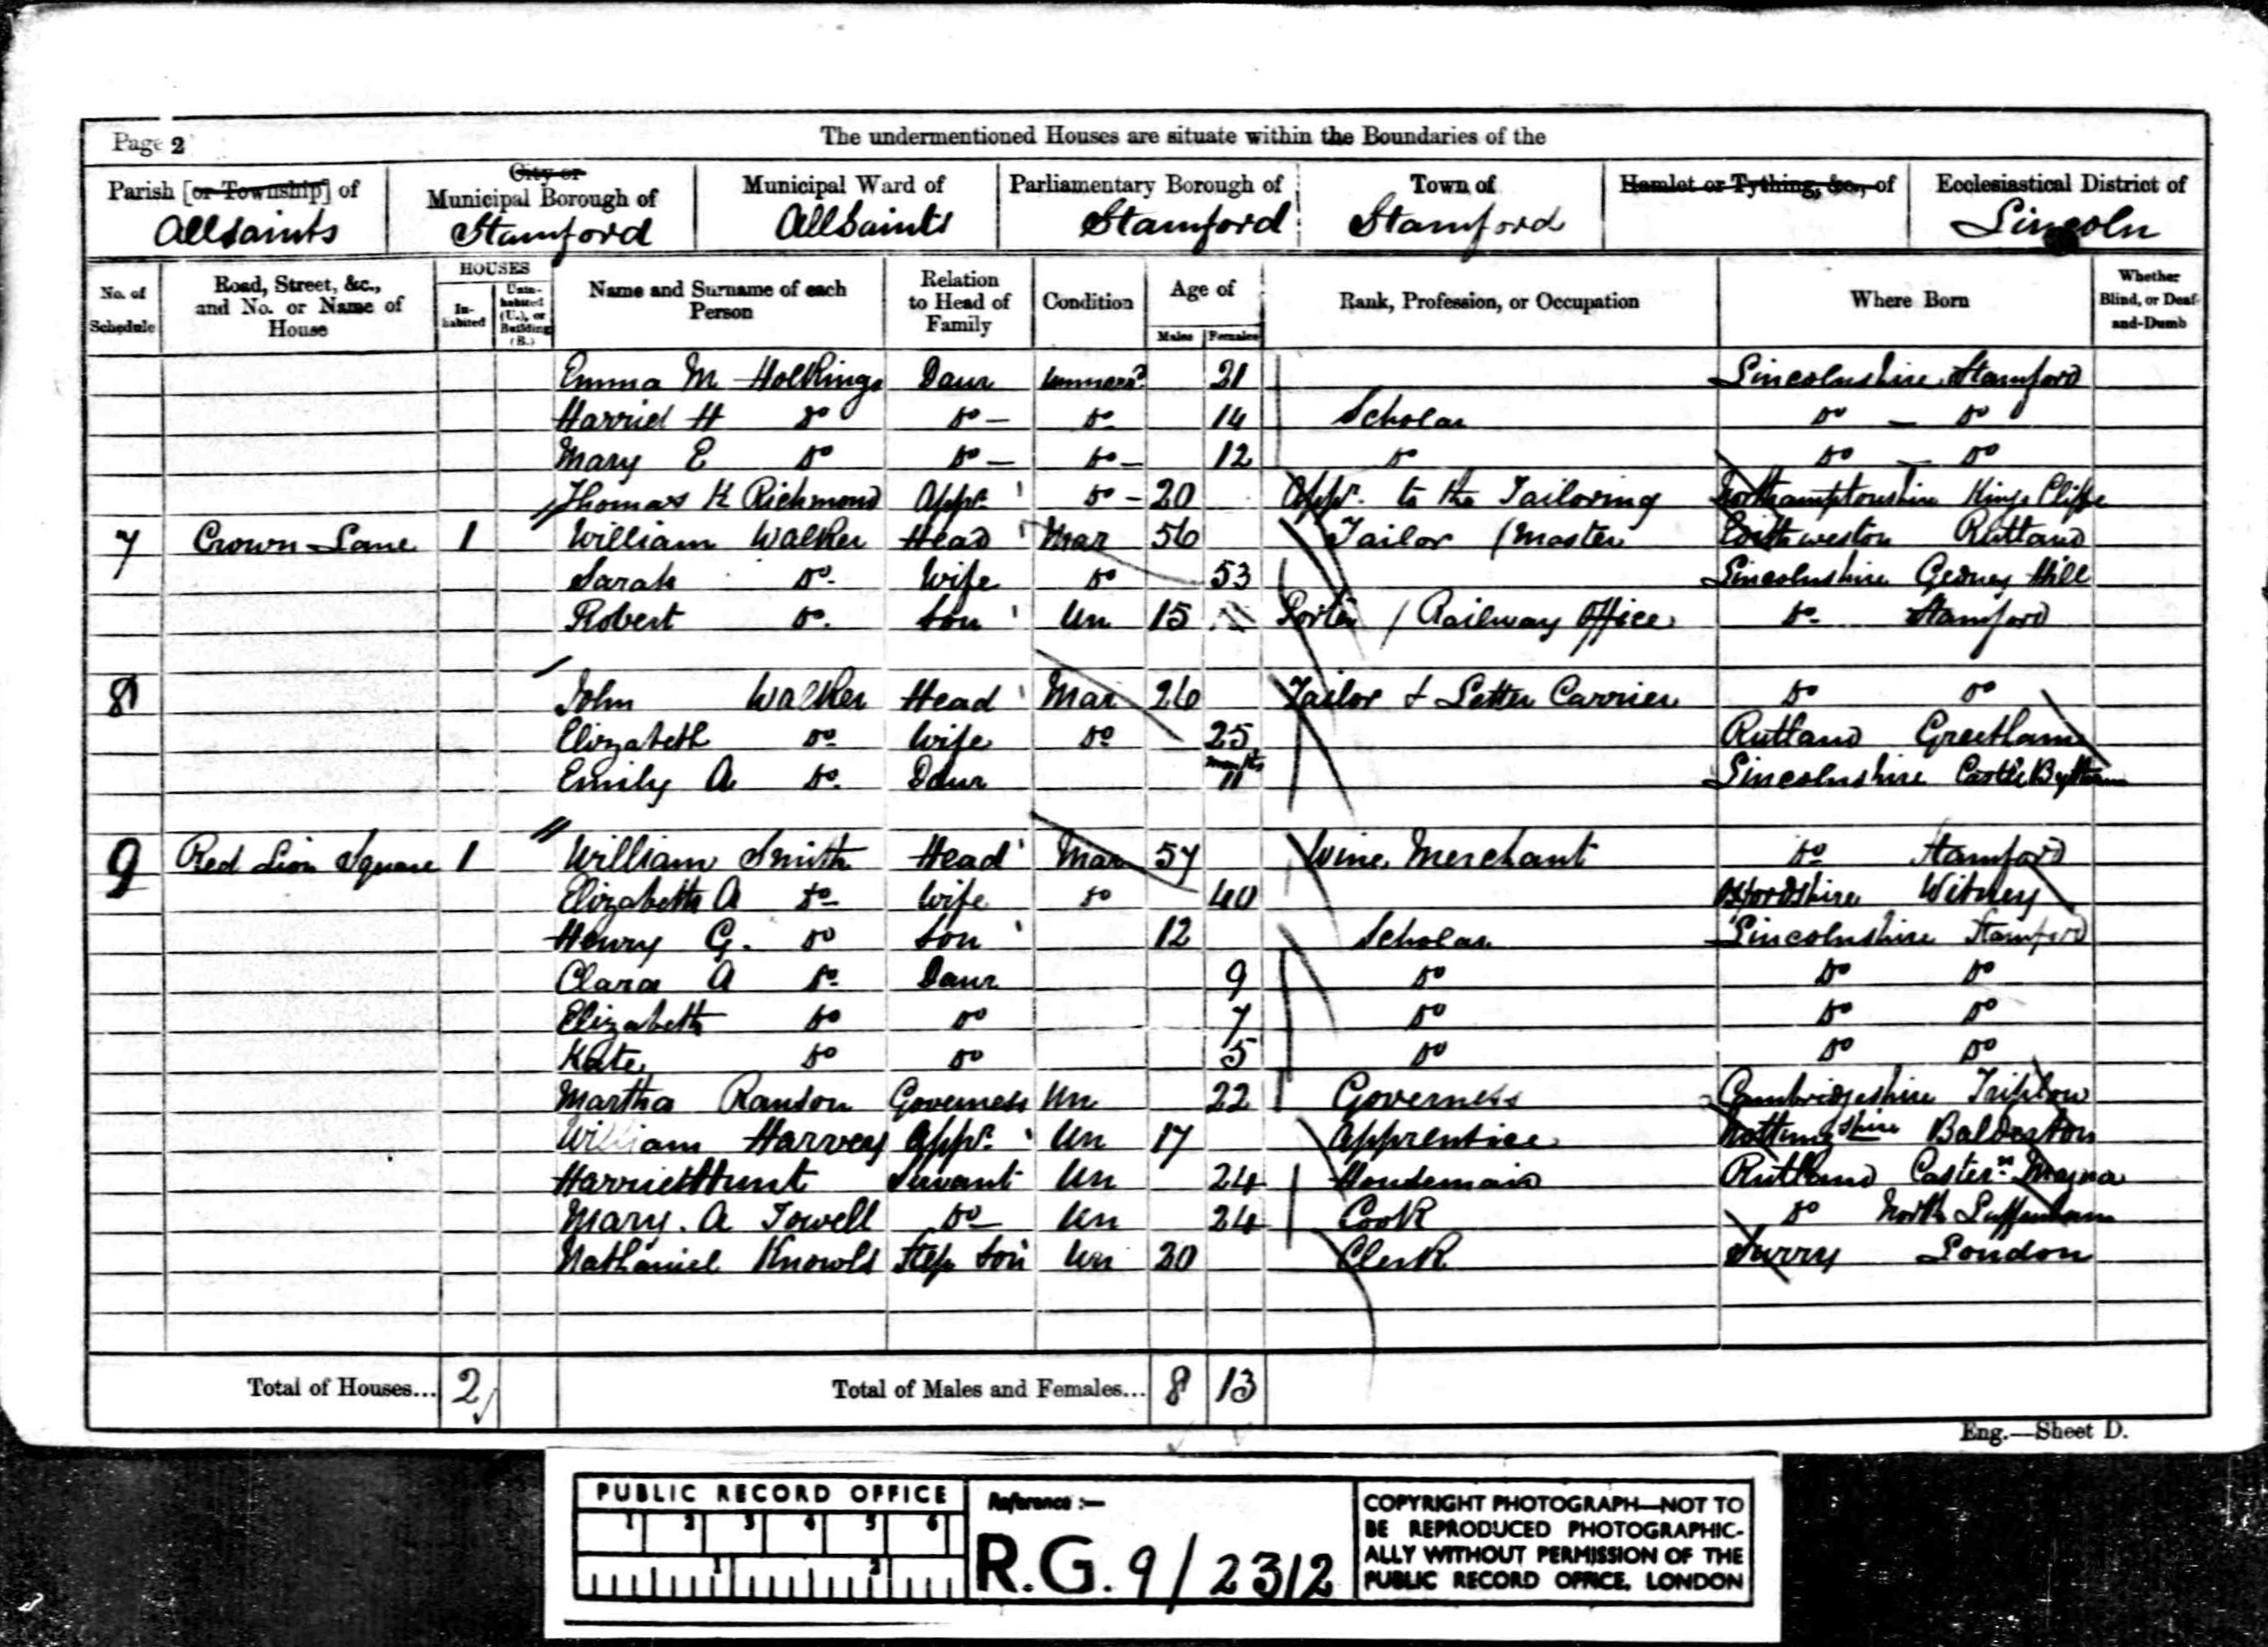 Page 2
The undermentioned Houses are situate within the Boundaries of the
Parish [or Township] of Allsaints
City or Municipal Borough of Stamford
Municipal Ward of AllSaints
Parliamentary Borough of Stamford
Town of Stamford
Hamlet or Tything, &c., of
Ecclesiastical District of Lincoln
No. of Schedule
Road, Street, &c., and No. or Name of House
HOUSES
In-habited
Unin-habited (U.), or Building (B.)
Name and Surname of each Person
Relation to Head of Family
Condition
Age of
Males Females
Rank, Profession, or Occupation
Where Born
Whether Blind, or Deaf-and-Dumb
Emma M Holkings Daur 21 Lincolnshire Stamford
Harriet H Do Do Do 14 Scholar Do Do
Mary E Do Do Do 12 Do Do Do
Thomas K Richmond Appr. Do 20 Appr. to the Tailoring Northamptonshire Kings Cliffe
7 Crown Lane 1 William Walker Head Mar 56 Tailor (Master Edithweston Rutland
Sarah Do Wife Do 53 Lincolnshire Gedney Hill
Robert Do Son Un 15 Porter / Railway Office Do Stamford
8 John Walker Head Mar 26 Tailor & Letter Carrier Do Do
Elizabeth Do Wife Do 25 Rutland Greetham
Emily A Do Daur months 11 Lincolnshire Castle Bytham
9 Red Lion Square 1 William Smith Head Mar 57 Wine Merchant Do Stamford
Elizabeth A Do Wife Do 40 Oxfordshire Witney
Henry G. Do Son 12 Scholar Lincolnshire Stamford
Clara A Do Daur 9 Do Do Do
Elizabeth Do Do 7 Do Do Do
Kate Do Do 5 Do Do Do
Martha Ranson Governess Un 22 Governess Cambridgeshire Triplow
William Harvey Appr. Un 17 Apprentice Nottingshire Balderton
Harriet Hunt Servant Un 24 Housemaid Rutland Castern Magna
Mary. A Towell Do Un 24 Cook Do North Luffenham
Nathaniel Knowls Step Son Un 20 Clerk Surry London
Total of Houses... 2
Total of Males and Females... 8 13
Eng.—Sheet D.
PUBLIC RECORD OFFICE
1 2 3 4 5 6
1 2
Reference :—
R.G. 9/2312
COPYRIGHT PHOTOGRAPH—NOT TO
BE REPRODUCED PHOTOGRAPHIC-
ALLY WITHOUT PERMISSION OF THE
PUBLIC RECORD OFFICE, LONDON